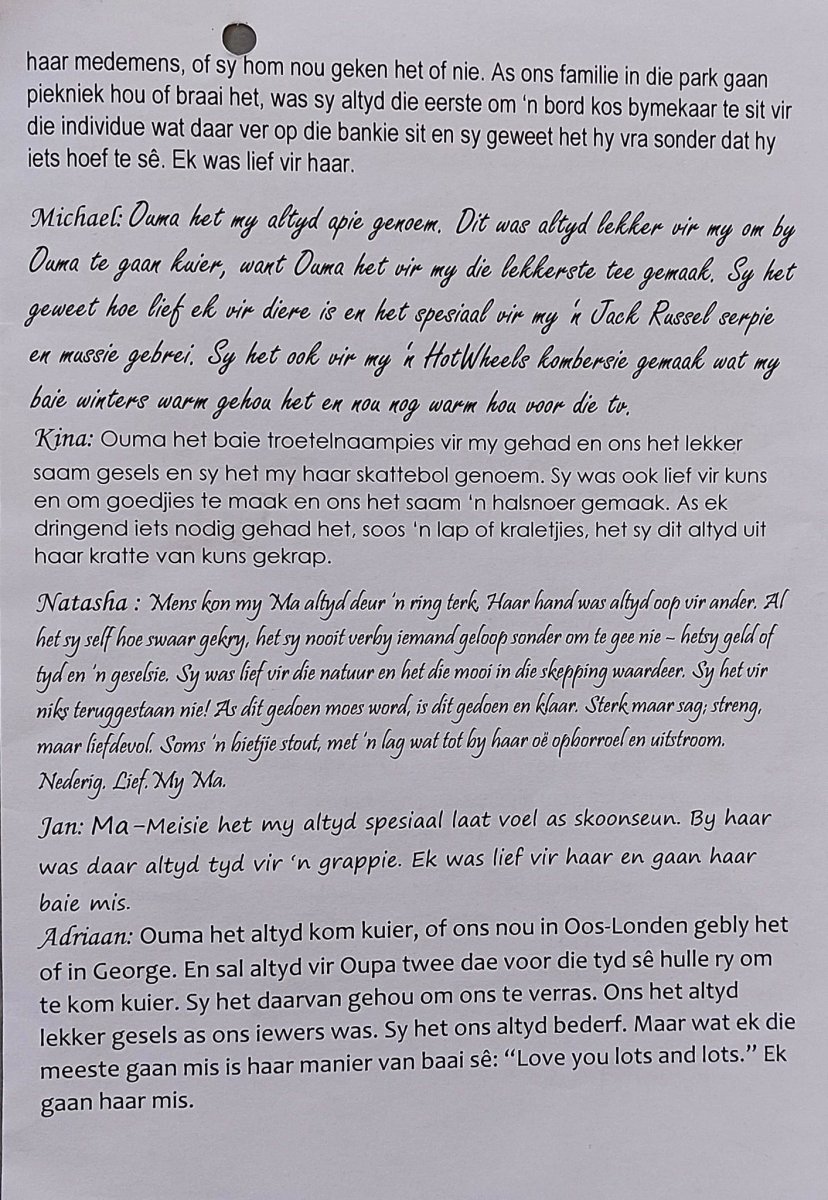 haar medemens, of sy hom nou geken het of nie. As ons familie in die park gaan
piekniek hou of braai het, was sy altyd die eerste om ‘n bord kos bymekaar te sit vir
die individue wat daar ver op die bankie sit en sy geweet het hy vra sonder dat hy
iets hoef te sê. Ek was lief vir haar.
Michael: Ouma het my altyd apie genoem. Dit was altyd lekker vir my om by
Ouma te gaan kuier, want Ouma het vir my die lekkerste tee gemaak. Sy het
geweet hoe lief ek vir diere is en het spesiaal vir my 'n Jack Russel serpie
en mussie gebrei. Sy het ook vir my 'n HotWheels kombersie gemaak wat my
baie winters warm gehou het en nou nog warm hou voor die tv.
Kina: Ouma het baie troetelnaampies vir my gehad en ons het lekker
saam gesels en sy het my haar skattebol genoem. Sy was ook lief vir kuns
en om goedjies te maak en ons het saam ‘n halsnoer gemaak. As ek
dringend iets nodig gehad het, soos ‘n lap of kraletjies, het sy dit altyd uit
haar kratte van kuns gekrap.
Natasha : Mens kon my Ma altyd deur ‘n ring terk, Haar hand was altyd oop vir ander. Al
het sy self hoe swaar gekry, het sy nooit verby iemand geloop sonder om te gee nie – hetsy geld of
tyd en ‘n geselsie. Sy was lief vir die natuur en het die mooi in die skepping waardeer. Sy het vir
niks teruggestaan nie! As dit gedoen moes word, is dit gedoen en klaar. Sterk maar sag; streng,
maar liefdevol. Soms ‘n bietjie stout, met ‘n lag wat tot by haar oë opborroel en uitstroom.
Nederig. Lief. My Ma.
Jan: Ma-Meisie het my altyd spesiaal laat voel as skoonseun. By haar
was daar altyd tyd vir ‘n grappie. Ek was lief vir haar en gaan haar
baie mis.
Adriaan: Ouma het altyd kom kuier, of ons nou in Oos-Londen gebly het
of in George. En sal altyd vir Oupa twee dae voor die tyd sê hulle ry om
te kom kuier. Sy het daarvan gehou om ons te verras. Ons het altyd
lekker gesels as ons iewers was. Sy het ons altyd bederf. Maar wat ek die
meeste gaan mis is haar manier van baai sê: “Love you lots and lots.” Ek
gaan haar mis.